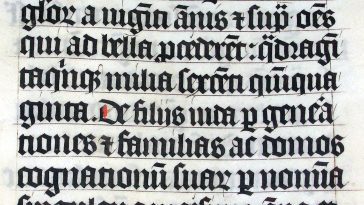 gloꝝ a uigīti ānis ⁊ supᷓ oēs
qui ad bella ꝓcederēt: qᷓdragī
taqīnqꝫ milia sexcēti quīqua
ginta. De filijs iuda ꝑ gen̄a
tiones ⁊ familias ac domos
cognationū suaꝝ ꝑ nomīa